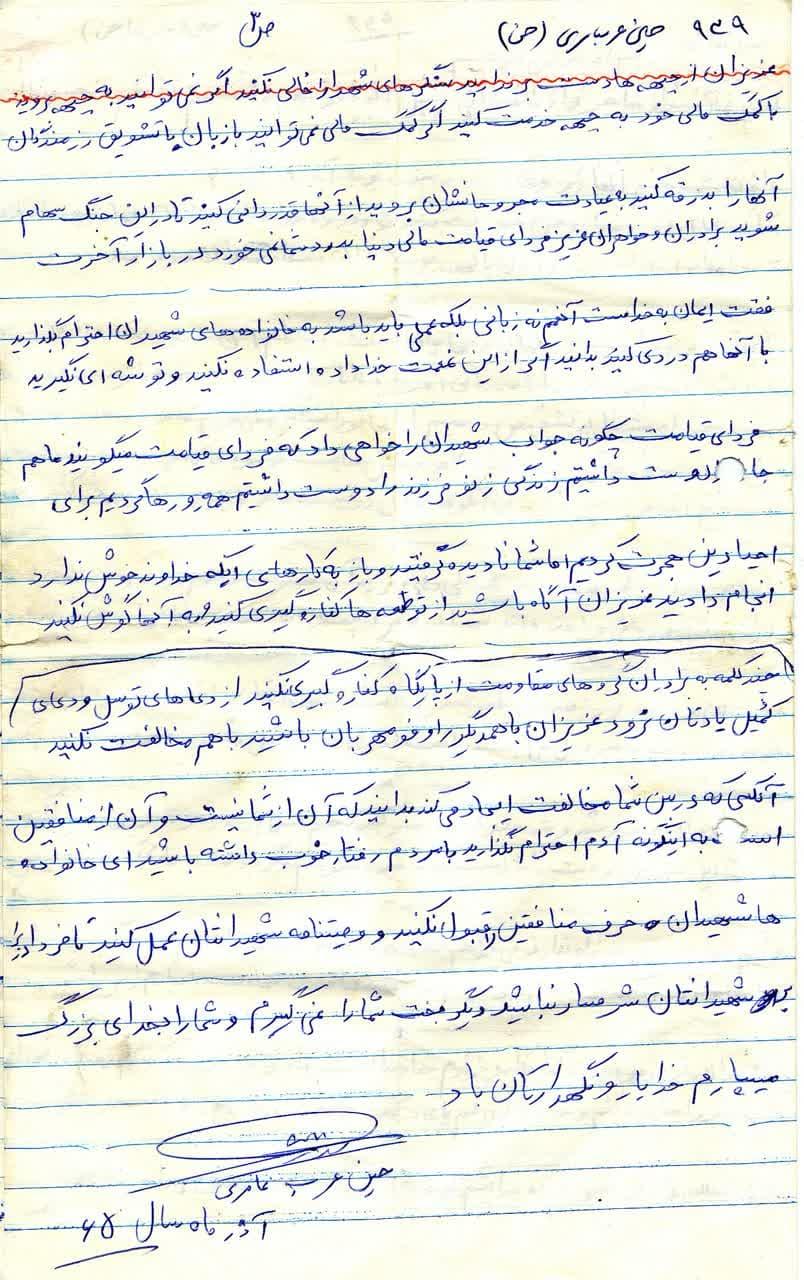 ۹۳۹ حسین عرب عامری (حسن) ص۳
عزیزان از جبهه ها دست برندارید سنگرهای شهدا را خالی نکنید اگر نمی توانید به جبهه بروید
با کمک مالی خود به جبهه خدمت کنید اگر کمک مالی نمی توانید با زبان با تشویق رزمندگان
آنها را بدرقه کنید به عیادت مجروحانشان بروید از آنها قدردانی کنید تا در این جنگ سهام
شوید برادران و خواهران عزیز فردای قیامت مالی دنیا بدرد شما نمی خورد در بازار آخرت
فقت ایمان به خداست آنهم نه زبانی بلکه عملی باید باشد به خانواده های شهیدان احترام بگذارید
با آنها هم دردی کنید بدانید اگر از این نعمت خداداده استفاده نکنید و توشه ای نگیرید
فردای قیامت چگونه جواب شهیدان را خواهی داد که فردای قیامت میگویند ما هم
دوست داشتیم زندگی زن و فرزند را دوست داشتیم همه رو رها کردیم برای
احیا دین هجرت کردیم اما شما نادیده گرفتید و باز به کارهای اینکه خداوند خوش ندارد
انجام دادید عزیزان آگاه باشید از توطعه ها کناره گیری کنید و به آنها گوش نکنید
چند کلمه به برادران گروهای مقاومت از پایگاه کناره گیری نکنید از دعاهای توسل و دعای
کمیل یادتان نرود عزیزان با همدیگر راوف و مهربان باشید با هم مخالفت نکنید
آنکسی که در بین شما مخالفت ایجاد می کند بدانید که آن از شما نیست و آن از منافقین
است به اینگونه آدم احترام نگذارید با مردم رفتار خوب داشته باشید ای خانواده
ها شهیدان حرف منافقین را قبول نکنید و وصیتنامه شهیدانتان عمل کنید تا فردا در برابر
شهیدانتان شرمسار نباشید دیگر وقت شما را نمی گیرم و شما را بخدای بزرگ
میسپارم خدا یار و نگهدارتان باد
حسین عرب عامری
آذر ماه سال ۶۵